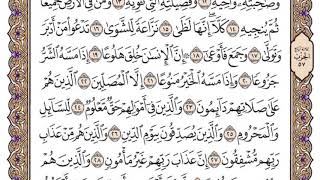 وَصَٰحِبَتِهِۦ وَأَخِيهِ ١٢ وَفَصِيلَتِهِ ٱلَّتِي تُـٔۡوِيهِ ١٣ وَمَن فِي ٱلۡأَرۡضِ جَمِيعٗا
ثُمَّ يُنجِيهِ ١٤ كَلَّآۖ إِنَّهَا لَظَىٰ ١٥ نَزَّاعَةٗ لِّلشَّوَىٰ ١٦ تَدۡعُواْ مَنۡ أَدۡبَرَ
وَتَوَلَّىٰ ١٧ وَجَمَعَ فَأَوۡعَىٰٓ ١٨ ۞ إِنَّ ٱلۡإِنسَٰنَ خُلِقَ هَلُوعًا ١٩ إِذَا مَسَّهُ ٱلشَّرُّ
جَزُوعٗا ٢٠ وَإِذَا مَسَّهُ ٱلۡخَيۡرُ مَنُوعًا ٢١ إِلَّا ٱلۡمُصَلِّينَ ٢٢ ٱلَّذِينَ هُمۡ
عَلَىٰ صَلَاتِهِمۡ دَآئِمُونَ ٢٣ وَٱلَّذِينَ فِيٓ أَمۡوَٰلِهِمۡ حَقّٞ مَّعۡلُومٞ ٢٤ لِّلسَّآئِلِ
وَٱلۡمَحۡرُومِ ٢٥ وَٱلَّذِينَ يُصَدِّقُونَ بِيَوۡمِ ٱلدِّينِ ٢٦ وَٱلَّذِينَ هُم مِّنۡ عَذَابِ
رَبِّهِم مُّشۡفِقُونَ ٢٧ إِنَّ عَذَابَ رَبِّهِمۡ غَيۡرُ مَأۡمُونٖ ٢٨ وَٱلَّذِينَ هُمۡ
الحزب
٥٧